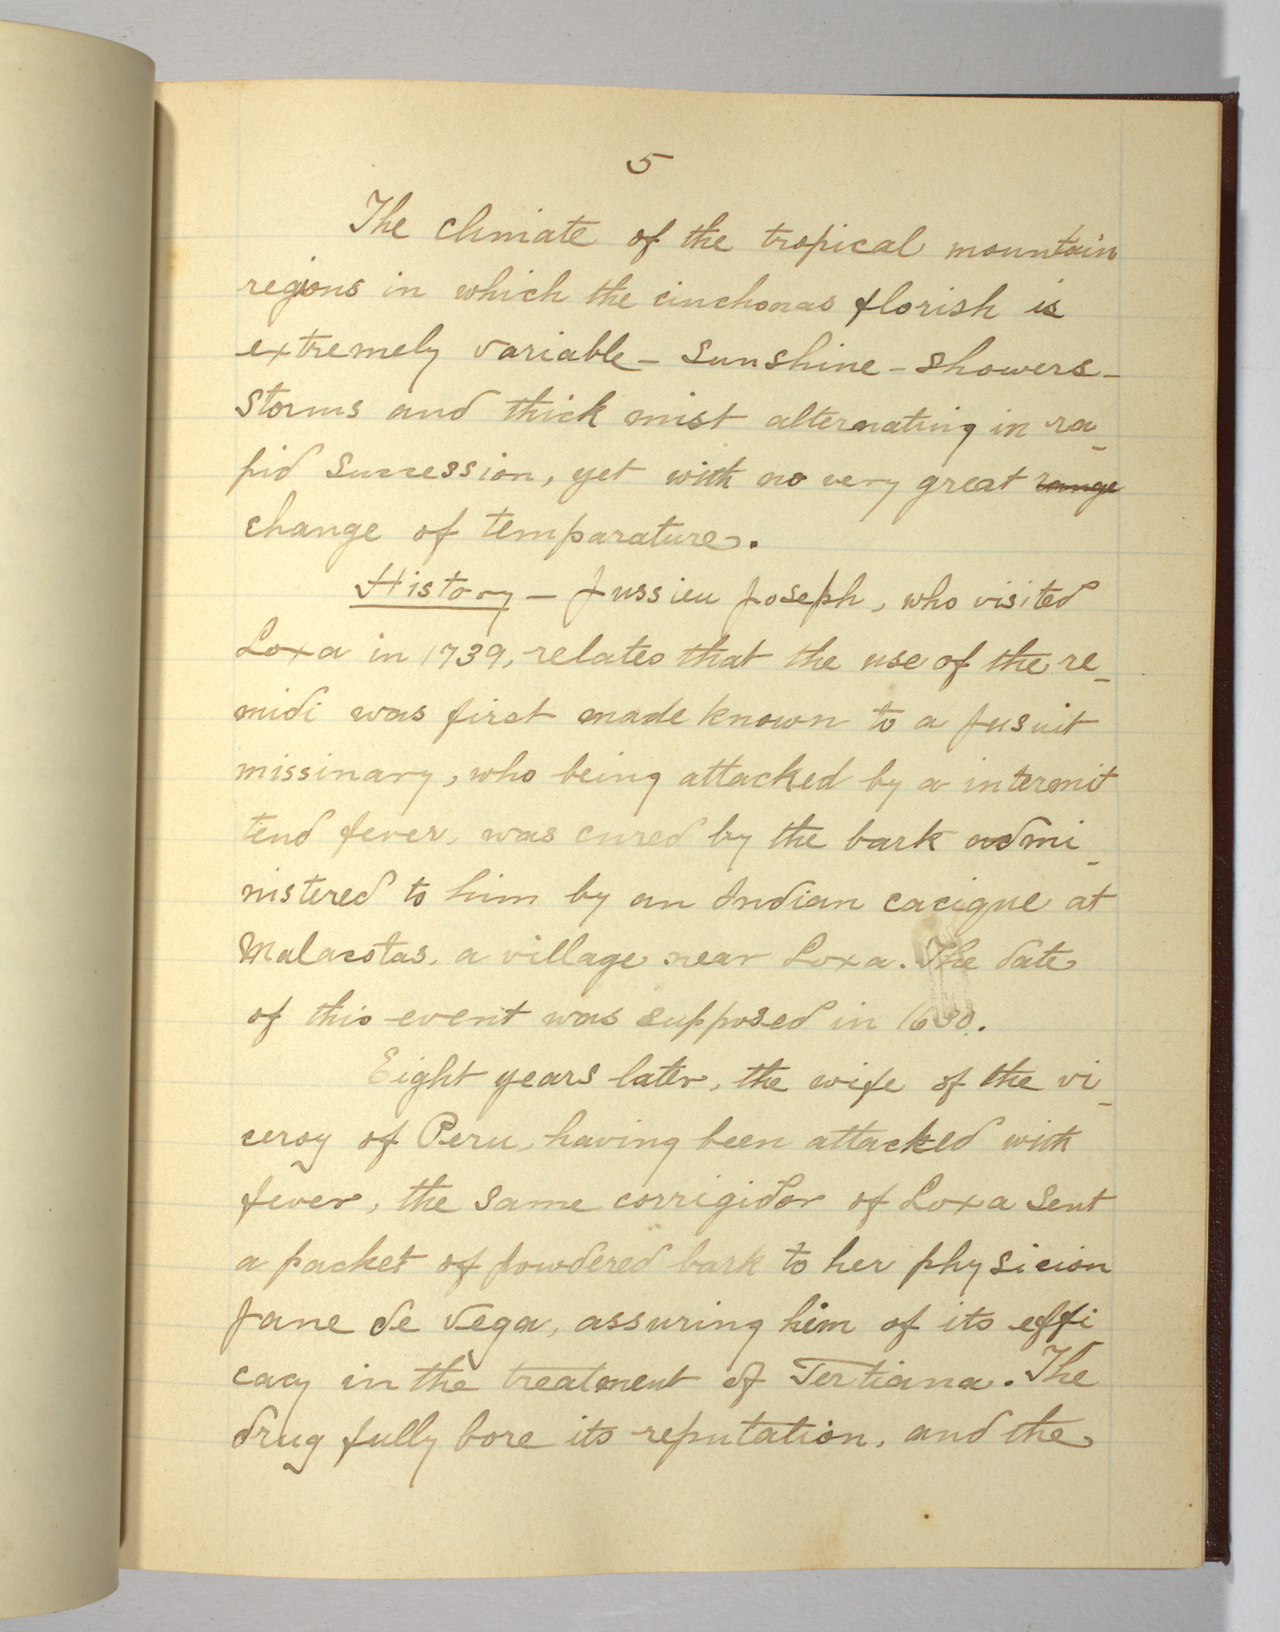 5
The climate of the tropical mountain
regions in which the cinchonas florish is
extremely variable - Sunshine - showers -
Storms and thick mist alternating in ra_
pid Succession, yet with no very great range
change of temparature.
History - Jussieu Joseph, who visited
Loxa in 1739, relates that the use of the re_
midi was first made known to a Jusuit
missinary, who being attacked by a intermit
tend fever, was cured by the bark admi_
nistered to him by an Indian cacique at
Malacotas, a village near Loxa. The date
of this event was supposed in 1630.
Eight years later, the wife of the vi_
ceroy of Peru, having been attacked with
fever, the same corrigidor of Loxa Sent
a packet of powdered bark to her physicion
Jane de Vega, assuring him of its effi
cacy in the treatment of Tertiana. The
drug fully bore its reputation, and the